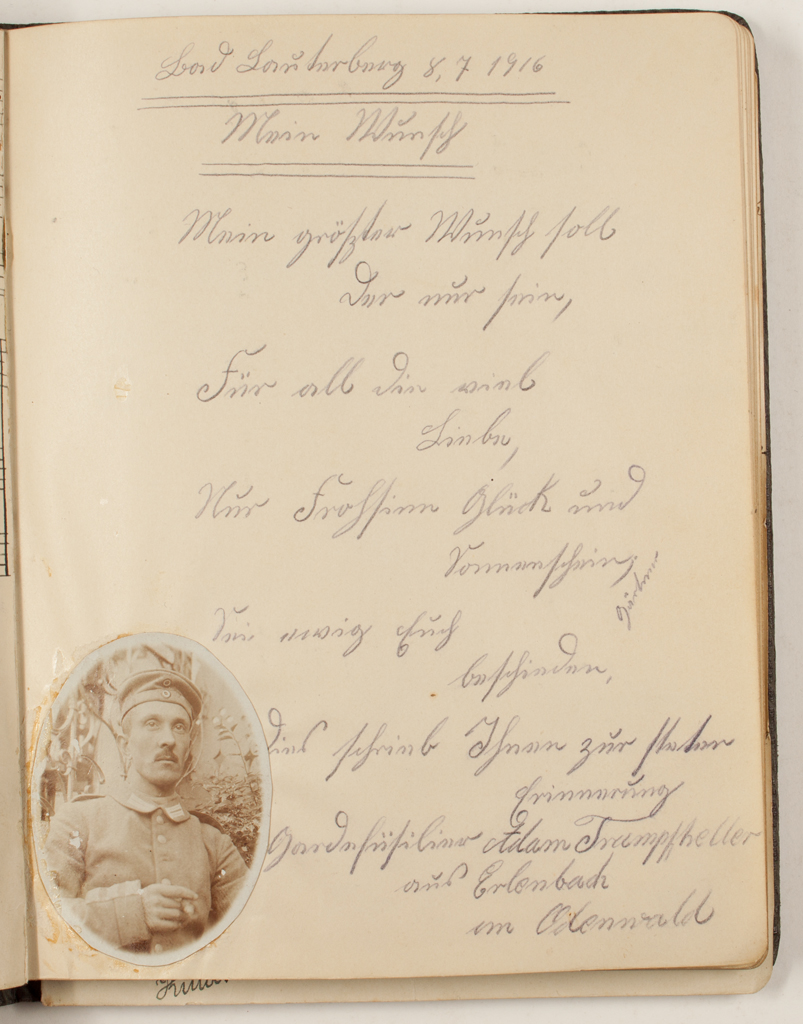 Bad Lauterberg 8,7 1916
Mein Wunsch
Mein größter Wunsch soll
der nur sein,
Für all die viel
Liebe,
Nur Frohsinn Glück und
Sonnenschein,
Sei ewig Euch
beschieden.
Dies schrieb Ihnen zur steten
Erinnerung
Gardefüsilier Adam Trumpfheller
aus Erlenbach
im Odenwald